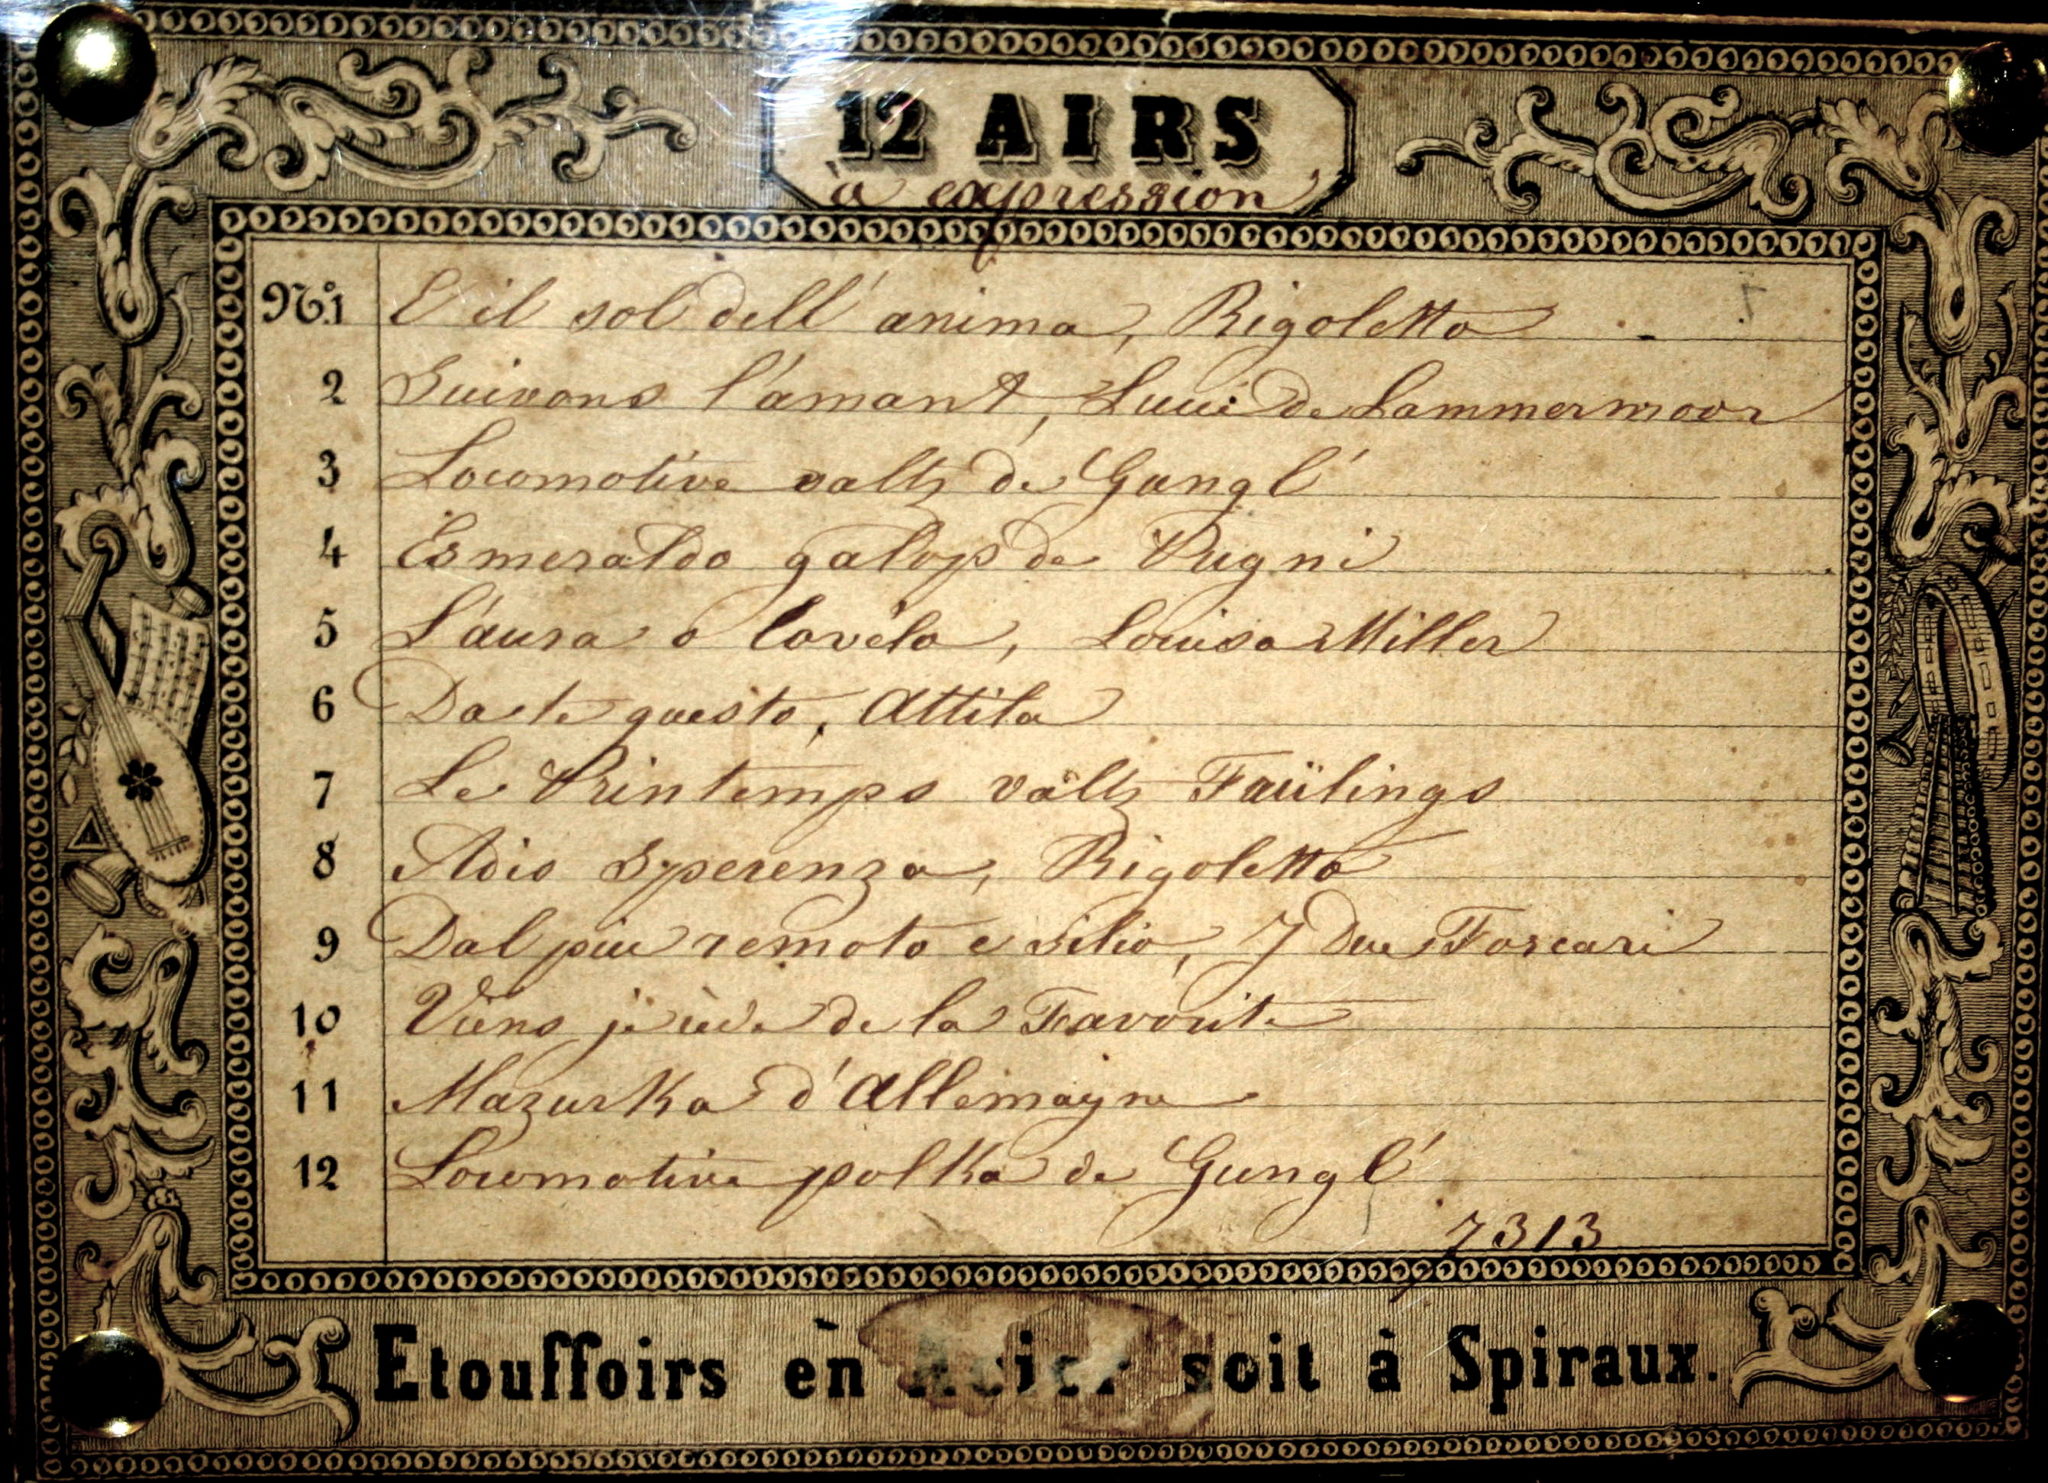 12 AIRS
à expression
Nº.1 E il sol dell' anima, Rigoletto
2 Suivons l'amant, Lucie de Lammermoor
3 Locomotive valtz de Gungl'
4 Esmeralda galop de Pugni
5 L'aura o lavéla, Louisa Miller
6 Da te questo, Attila
7 Le Printemps valtz Faülings
8 Adio Sperenza, Rigoletto
9 Dal piu remoto e silio, I Due Foscari
10 Viens je rève de la Favorite
11 Mazurka d'Allemagne
12 Locomotive polka de Gungl'
7313
Etouffoirs èn Acier soit à Spiraux.